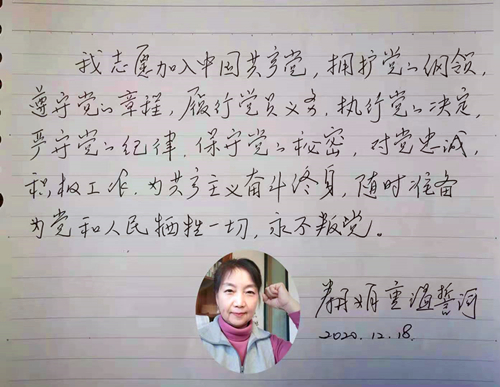 我志愿加入中国共产党，拥护党的纲领，
遵守党的章程，履行党员义务，执行党的决定，
严守党的纪律，保守党的秘密，对党忠诚，
积极工作，为共产主义奋斗终身，随时准备
为党和人民牺牲一切，永不叛党。
重温誓词
2020.12.18.